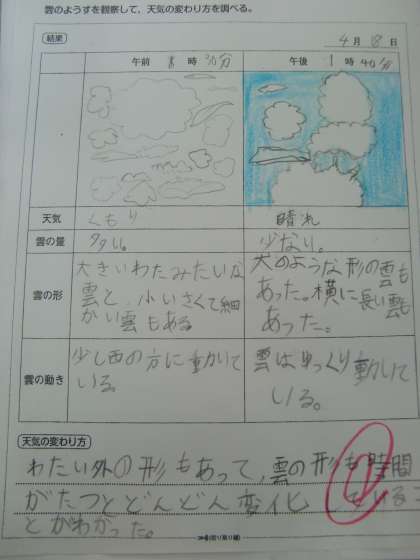 雲のようすを観察して、天気の変わり方を調べる。
結果
4月18日
午前 8時30分 午後 1時40分
天気 くもり 晴れ
雲の量 多い。 少なり。
雲の形
大きいわたみたいな
雲と、小いさくて細
かい雲もある
犬のような形の雲も
あった。横に長い雲も
あった。
雲の動き
少し西の方に動いて
いる。
雲はゆっくり動して
いる。
天気の変わり方
わたい外の形もあって、雲の形も時間
がたつとどんどん変化しているこ
とがわかった。